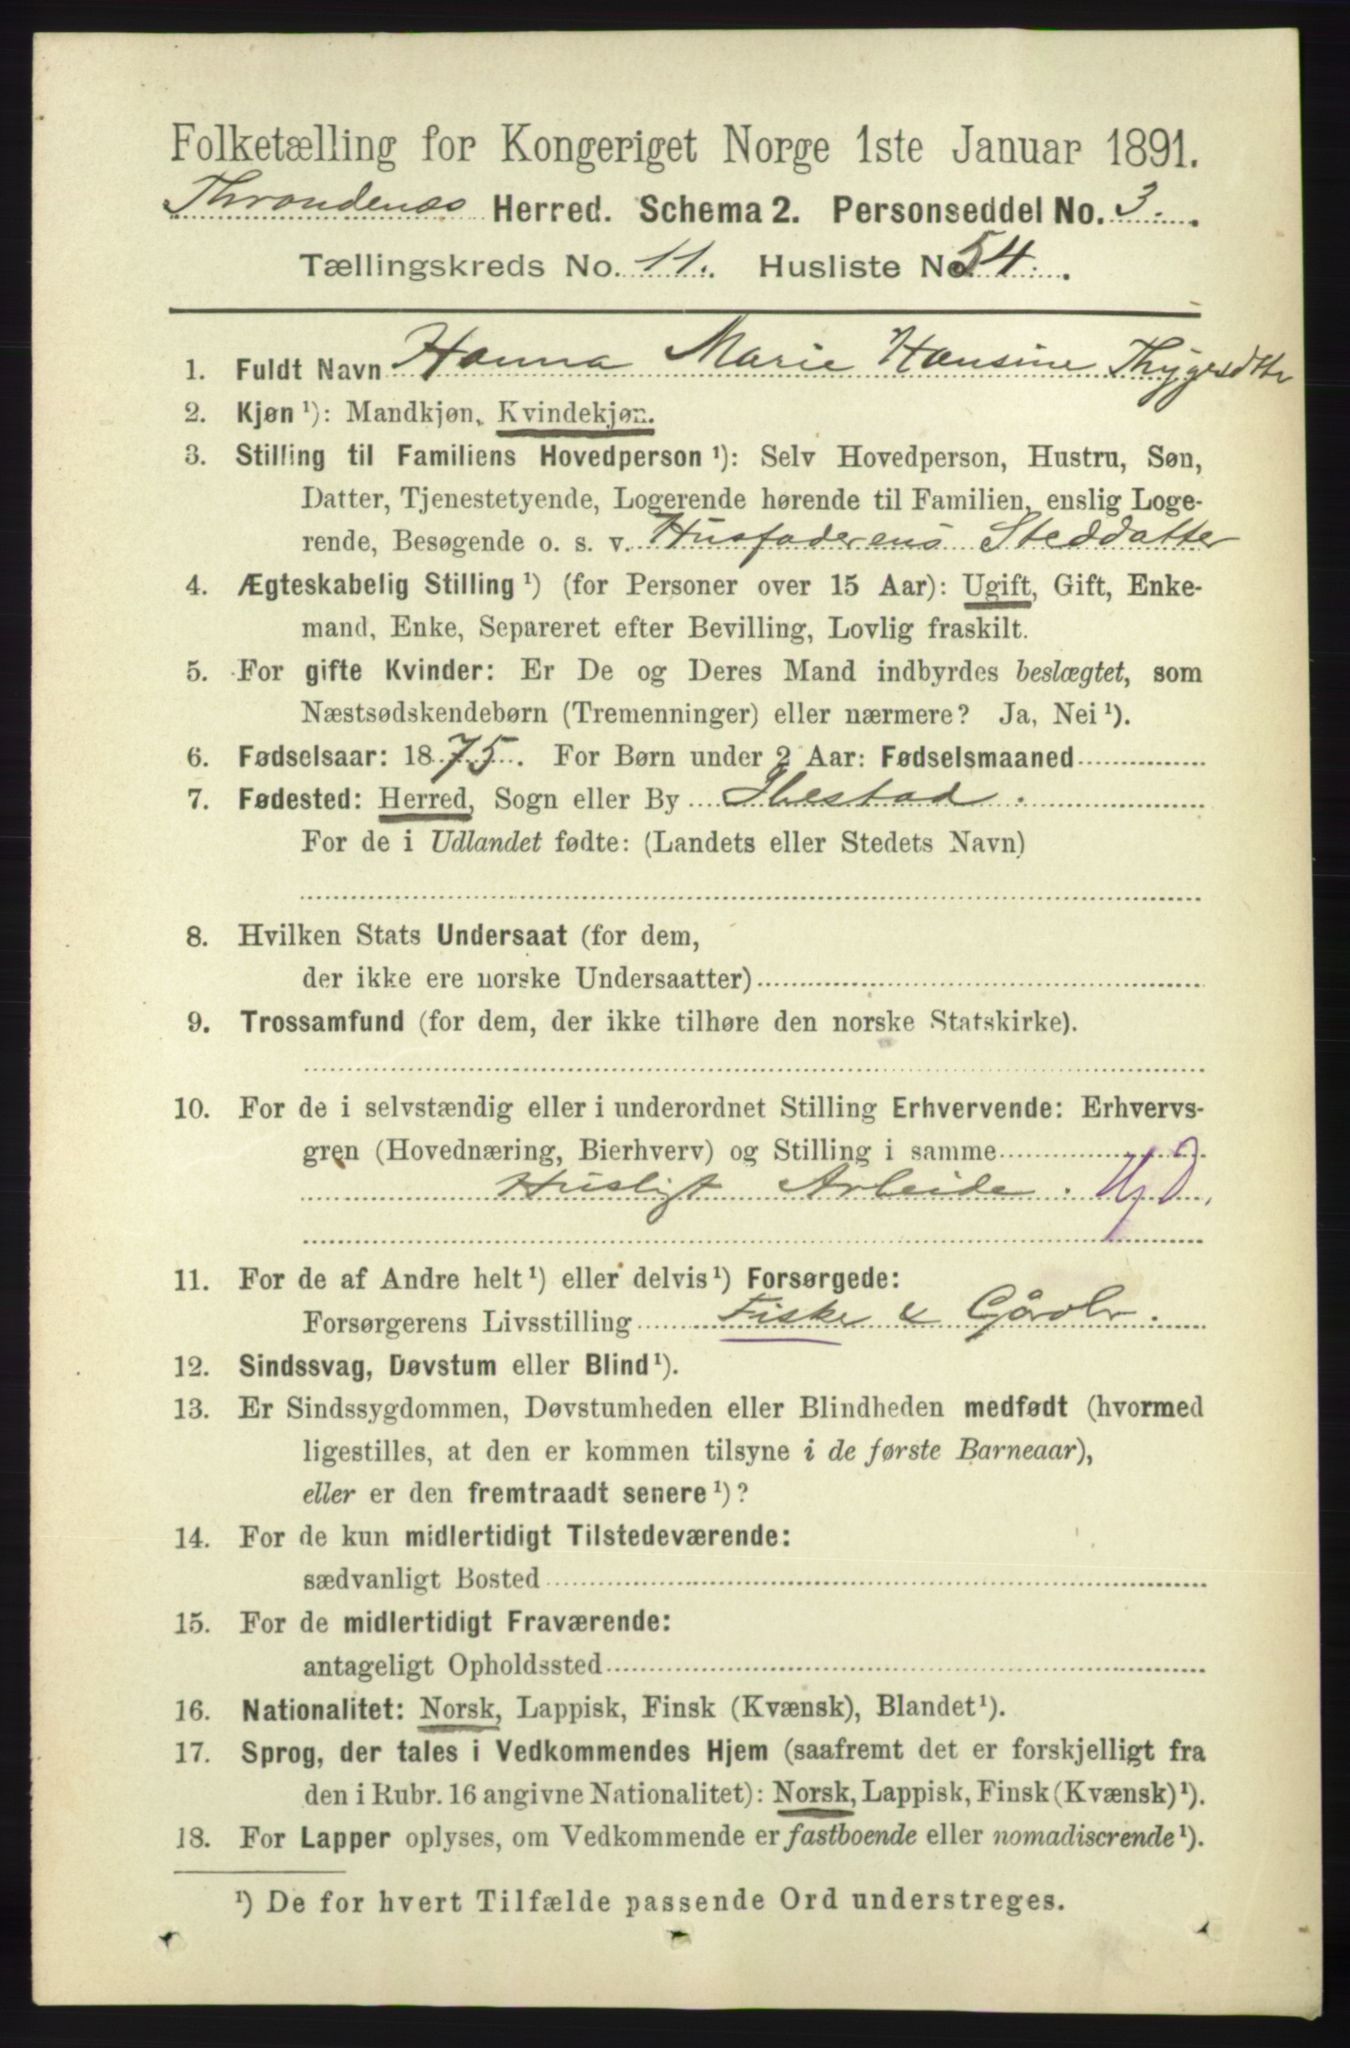 Folketælling for Kongeriget Norge 1ste Januar 1891.
Throndenæs Herred. Schema 2. Personseddel No. 3.
Tællingskreds No. 11. Husliste No. 54.
1. Fuldt Navn Hanna Marie Hansine Thygesdtr
2. Kjøn ¹): Mandkjøn, Kvindekjøn.
3. Stilling til Familiens Hovedperson ¹): Selv Hovedperson, Hustru, Søn,
Datter, Tjenestetyende, Logerende hørende til Familien, enslig Loge-
rende, Besøgende o. s. v. Husfaderens Steddatter
4. Ægteskabelig Stilling ¹) (for Personer over 15 Aar): Ugift, Gift, Enke-
mand, Enke, Separeret efter Bevilling, Lovlig fraskilt.
5. For gifte Kvinder: Er De og Deres Mand indbyrdes beslægtet, som
Næstsødskendebørn (Tremenninger) eller nærmere? Ja, Nei ¹).
6. Fødselsaar: 1875. For Børn under 2 Aar: Fødselsmaaned
7. Fødested: Herred, Sogn eller By Ibestad.
For de i Udlandet fødte: (Landets eller Stedets Navn)
8. Hvilken Stats Undersaat (for dem,
der ikke ere norske Undersaatter)
9. Trossamfund (for dem, der ikke tilhøre den norske Statskirke).
10. For de i selvstændig eller i underordnet Stilling Erhvervende: Erhvervs-
gren (Hovednæring, Bierhverv) og Stilling i samme
Husligt Arbeide.
11. For de af Andre helt ¹) eller delvis ¹) Forsørgede:
Forsørgerens Livsstilling Fisker & Gårdbr.
12. Sindssvag, Døvstum eller Blind ¹).
13. Er Sindssygdommen, Døvstumheden eller Blindheden medfødt (hvormed
ligestilles, at den er kommen tilsyne i de første Barneaar),
eller er den fremtraadt senere ¹)?
14. For de kun midlertidigt Tilstedeværende:
sædvanligt Bosted
15. For de midlertidigt Fraværende:
antageligt Opholdssted
16. Nationalitet: Norsk, Lappisk, Finsk (Kvænsk), Blandet ¹).
17. Sprog, der tales i Vedkommendes Hjem (saafremt det er forskjelligt fra
den i Rubr. 16 angivne Nationalitet): Norsk, Lappisk, Finsk (Kvænsk) ¹).
18. For Lapper oplyses, om Vedkommende er fastboende eller nomadiserende ¹).
¹) De for hvert Tilfælde passende Ord understreges.